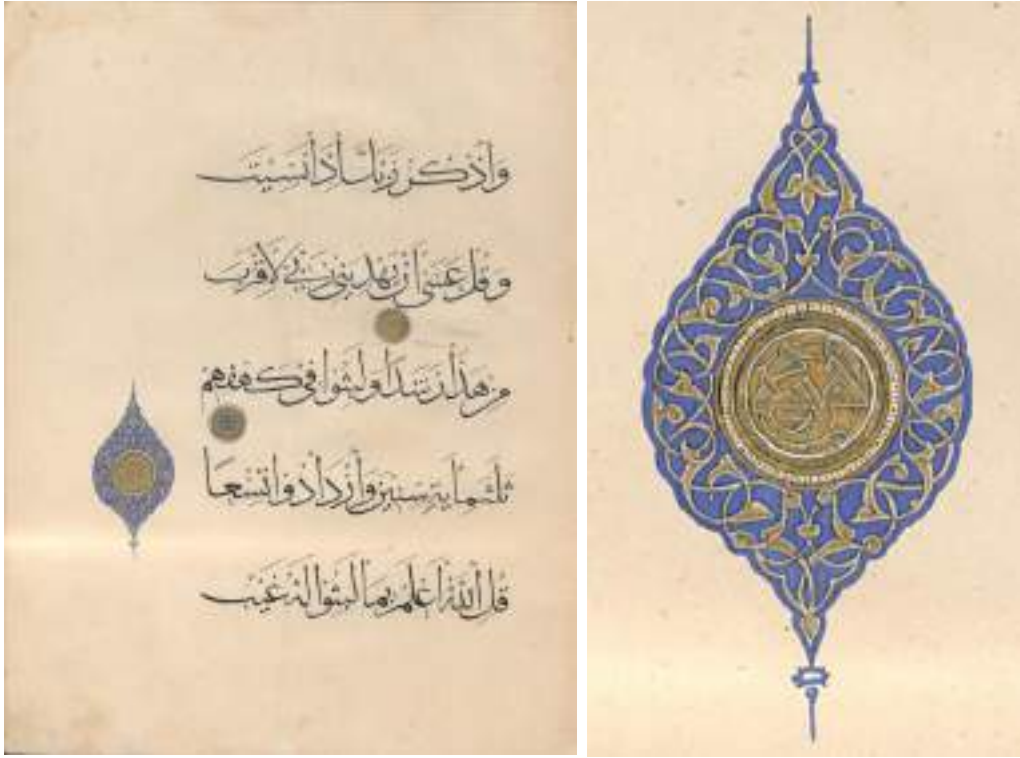 وَاذْكُر رَبَّكَ إِذَا نَسِيتَ
وَقُلْ عَسَى أَن يَهْدِيَنِي رَبِّي لِأَقْرَبَ
مِنْ هَذَا رَشَدًا وَلَبِثُوا فِي كَهْفِهِمْ
ثَلَثَمِايَةٍ سِنِينَ وَازْدَادُوا تِسْعًا
قُلِ اللَّهُ أَعْلَمُ بِمَا لَبِثُوا لَهُ غَيْبُ